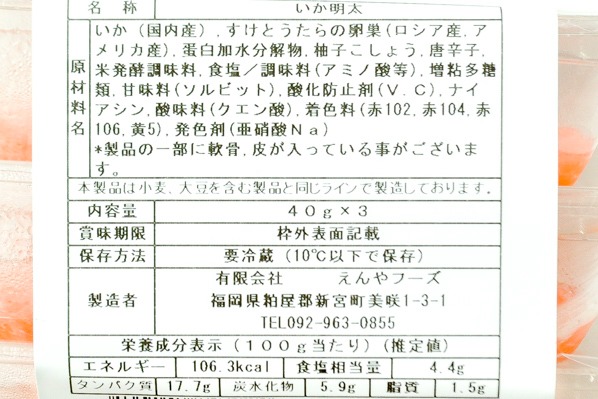 名 称 いか明太
原材料名
いか（国内産）,すけとうたらの卵巣(ロシア産,ア
メリカ産),蛋白加水分解物,柚子こしょう,唐辛子,
米発酵調味料,食塩／調味料(アミノ酸等),増粘多糖
類,甘味料(ソルビット),酸化防止剤(V.C),ナイ
アシン,酸味料(クエン酸),着色料(赤102,赤104,赤
106,黄5),発色剤(亜硝酸Ｎａ)
*製品の一部に軟骨,皮が入っている事がございま
す。
本製品は小麦、大豆を含む製品と同じラインで製造しております。
内容量 40g×3
賞味期限 枠外表面記載
保存方法 要冷蔵（10℃以下で保存）
製造者
有限会社 えんやフーズ
福岡県粕屋郡新宮町美咲1-3-1
TEL092-963-0855
栄養成分表示（100g当たり）(推定値)
エネルギー 106.3kcal 食塩相当量 4.4g
タンパク質 17.7g 炭水化物 5.9g 脂質 1.5g